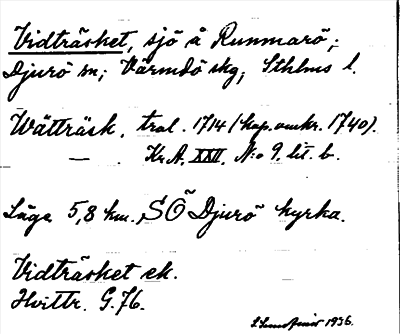 Vidträsket, sjö å Runmarö;
Djurö sn; Värmdö skg, Sthlms l.
Wätträsk, tral. 1714 (kop. omkr. 1740).
— . Kr. A. XXII, N:o 9. lit. b.
Läge 5,8 km. SÖ Djurö kyrka.
Vidträsket ek.
Hvittr. G. 76.
1936.